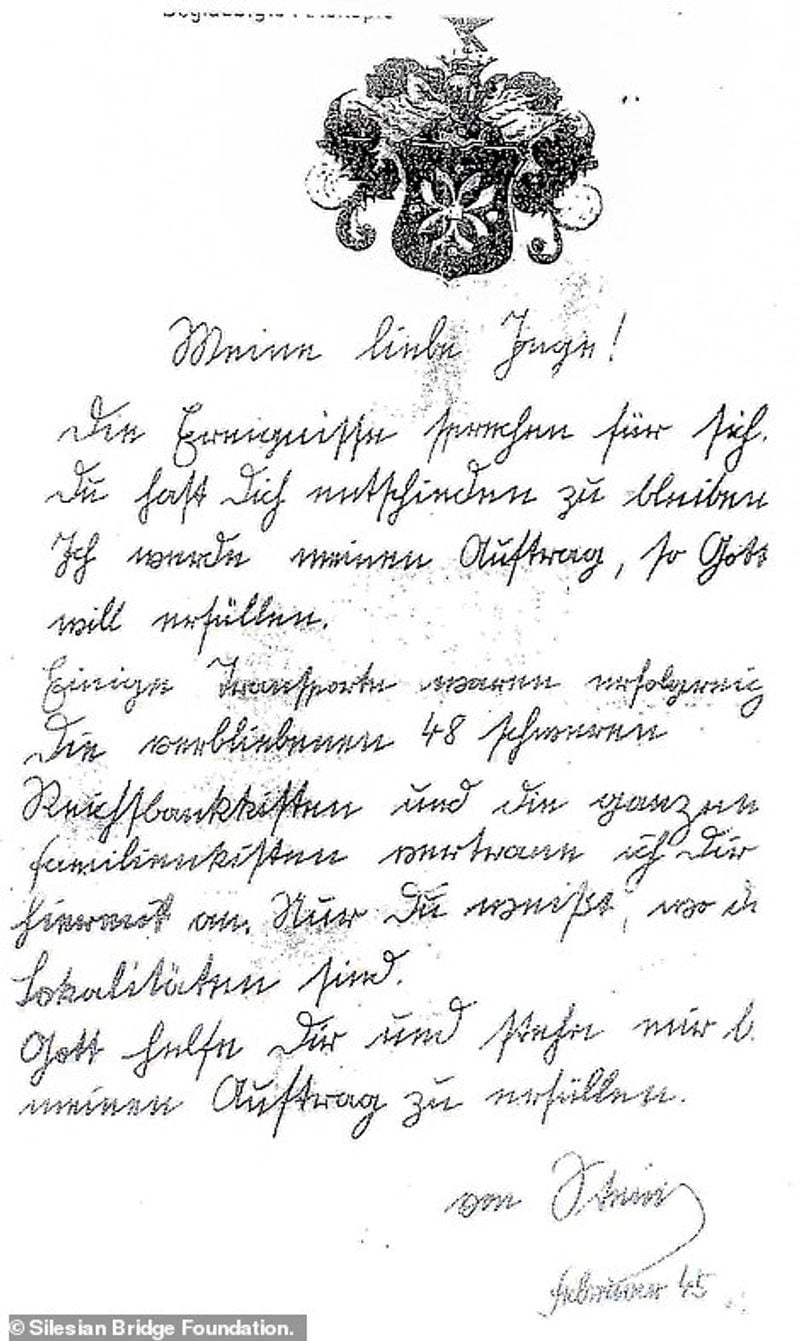 Beglaubigte Fotokopie
Meine liebe Inge!
Die Ereignisse sprechen für sich.
Du hast Dich entschieden zu bleiben
Ich werde meinen Auftrag, so Gott
will erfüllen.
Einige Transporte waren erfolgreich
Die verbliebenen 48 schweren
Reichsbankkisten und die ganzen
Familienkisten vertraue ich Dir
hiermit an. Nur Du weißt, wo di
Lokalitäten sind.
Gott helfe Dir und stehe mir b.
meinen Auftrag zu erfüllen.
von
Februar 45
© Silesian Bridge Foundation.